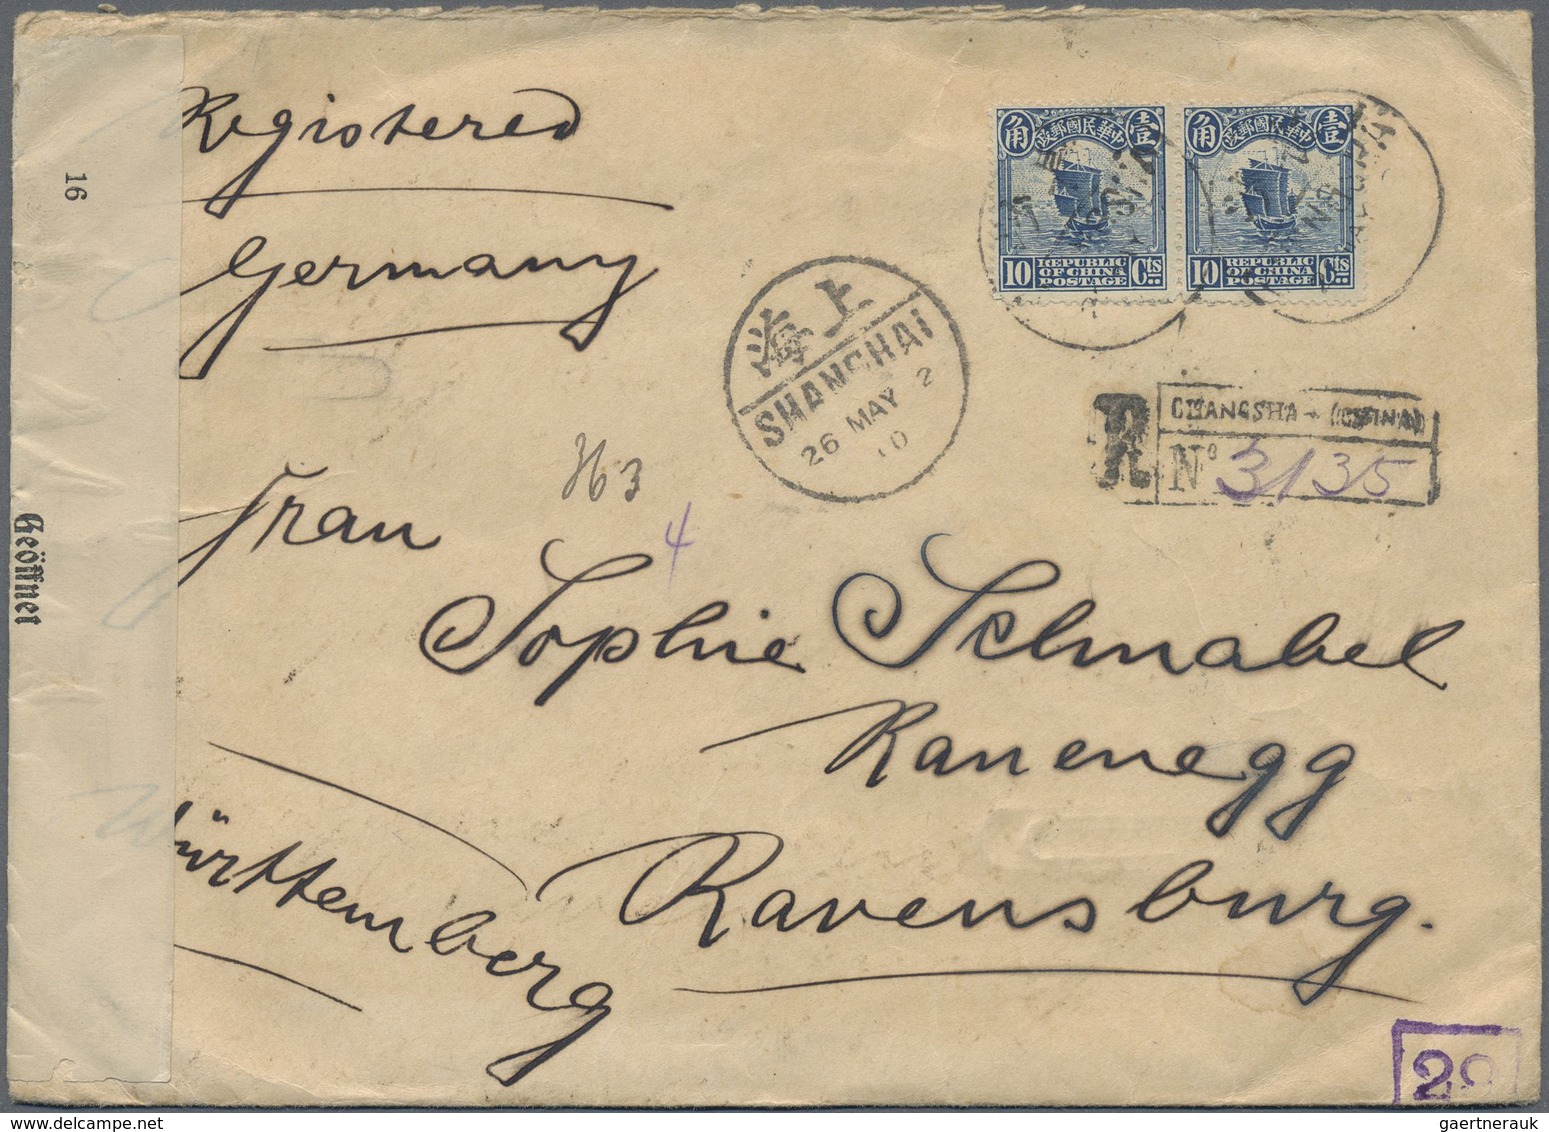 Registered
Germany
角 政郵國民華中 壹
10 REPUBLIC OF CHINA POSTAGE Cts
角 政郵國民華中 壹
10 REPUBLIC OF CHINA POSTAGE Cts
海上
SHANGHAI
26 MAY 2
10
R CHANGSHA - (CHINA)
Nº 3135
16
Geöffnet
Frau
4
Sophie Schnabel
Ravensburg.
Württemberg
gaertnerauk